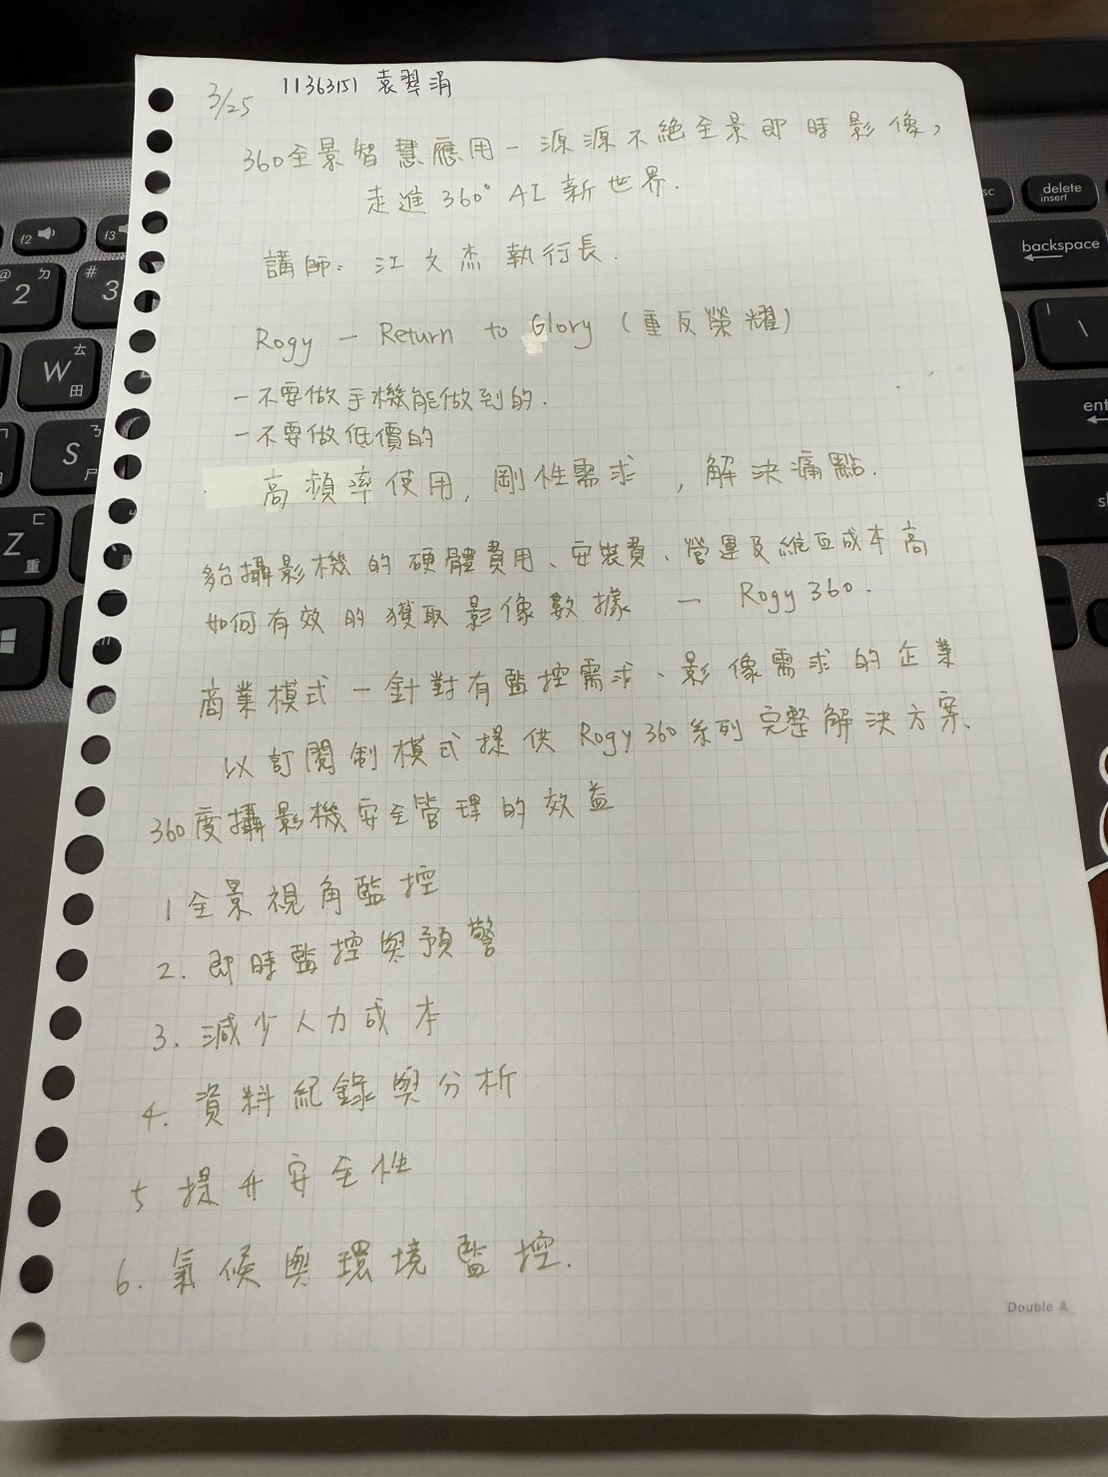 3/25 11363151 袁翆涓
360全景智慧應用－源源不絕全景即時影像，
走進360° AI 新世界.
講師：江文杰執行長.
Rogy － Return to Glory (重反榮耀)
－不要做手機能做到的.
－不要做低價的
高頻率使用，剛性需求，解決痛點.
多台攝影機的硬體費用、安裝費、營運及維互成本高
如何有效的獲取影像數據 － Rogy 360.
商業模式－針對有監控需求、影像需求的企業
以訂閱制模式提供 Rogy 360系列完整解決方案、
360度攝影機安全管理的效益
1 全景視角監控
2. 即時監控與預警
3. 減少人力成本
4. 資料紀錄與分析
5 提升安全性
6. 氣候與環境監控.
Double A
f2
f3
@ ㄉ
2
#
3
W ㄊ
田
S ㄋ
尸
Z ㄈ
重
sc
delete
insert
backspace
\
ent
sh